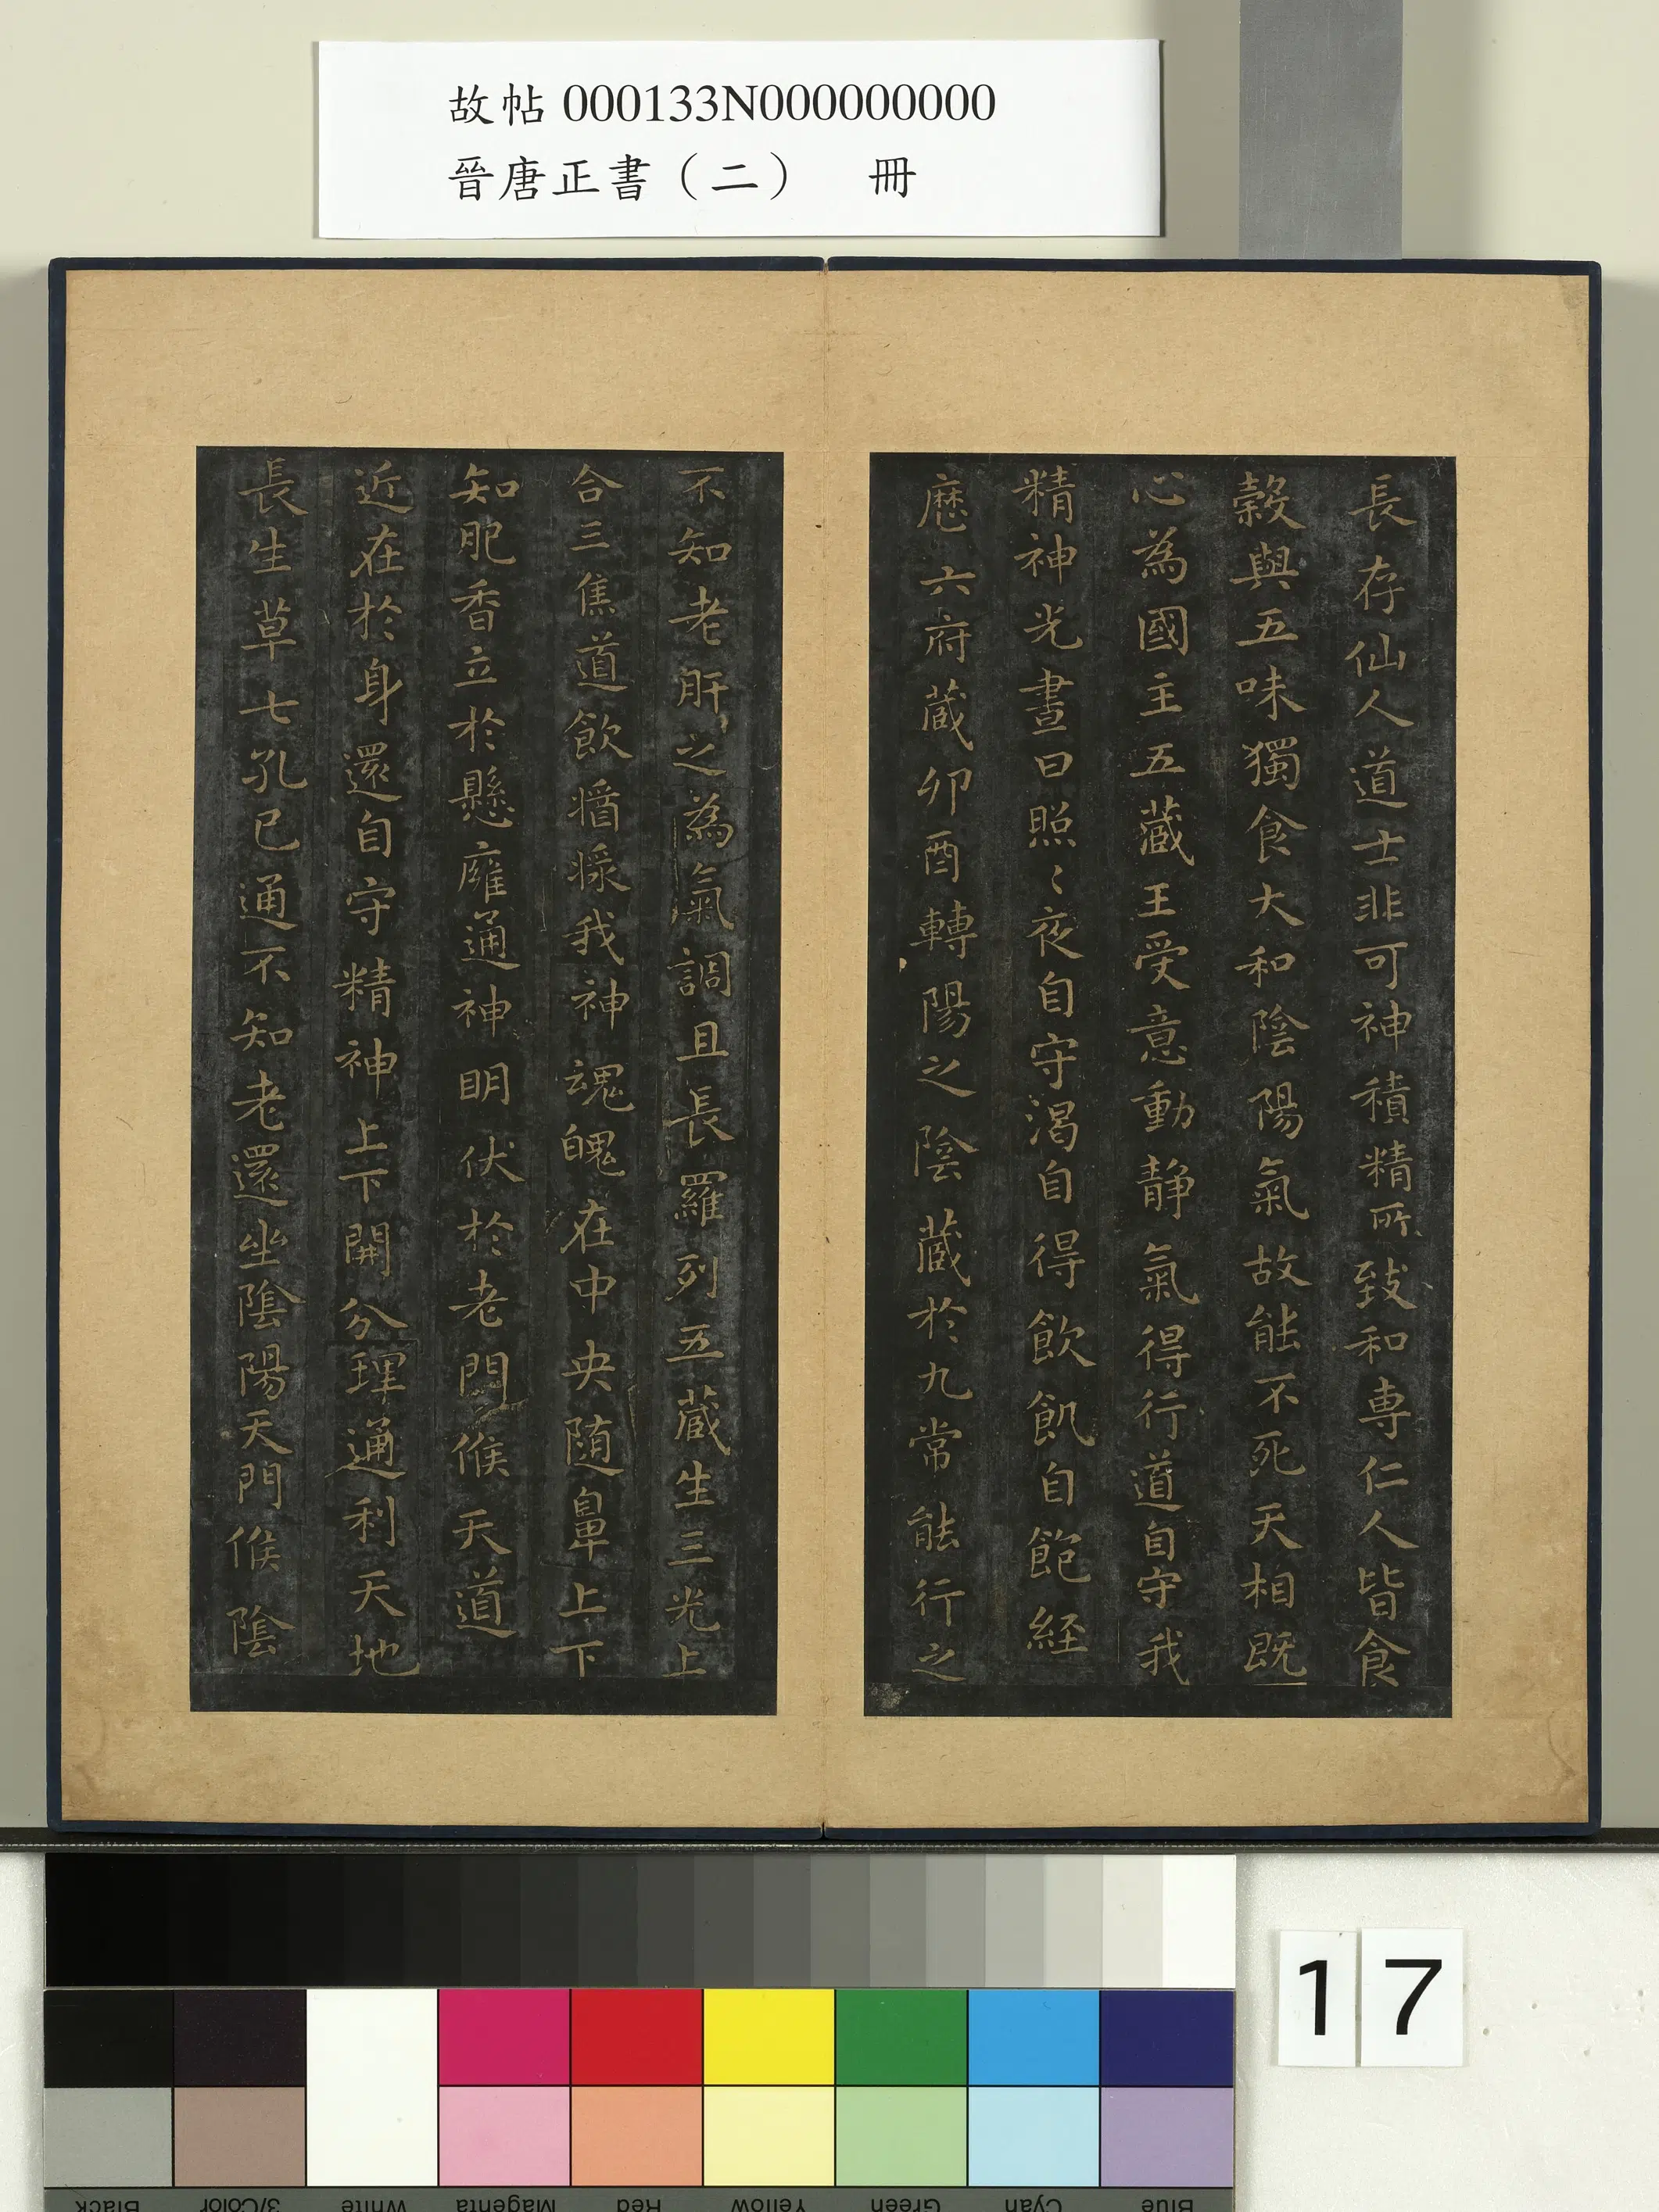 故帖 000133N000000000
晉唐正書（二） 冊
長存仙人道士非可神積精所致和専仁人皆食
穀與五味獨食大和陰陽氣故能不死天相既
心為國主五藏王受意動靜氣得行道自守我
精神光晝日照〻夜自守渴自得飲飢自飽経
歷六府蔵卯酉轉陽之陰蔵於九常能行之
不知老肝之為氣調且長羅列五蔵生三光上
合三焦道飲醬㵪我神魂魄在中央随鼻上下
知肥香立於懸廱通神明伏於老門候天道
近在於身還自守精神上下開分理通利天地
長生草七孔已通不知老還坐陰陽天門候陰
17
Black
3/Color
White
Magenta
Red
Yellow
Green
Cyan
Blue